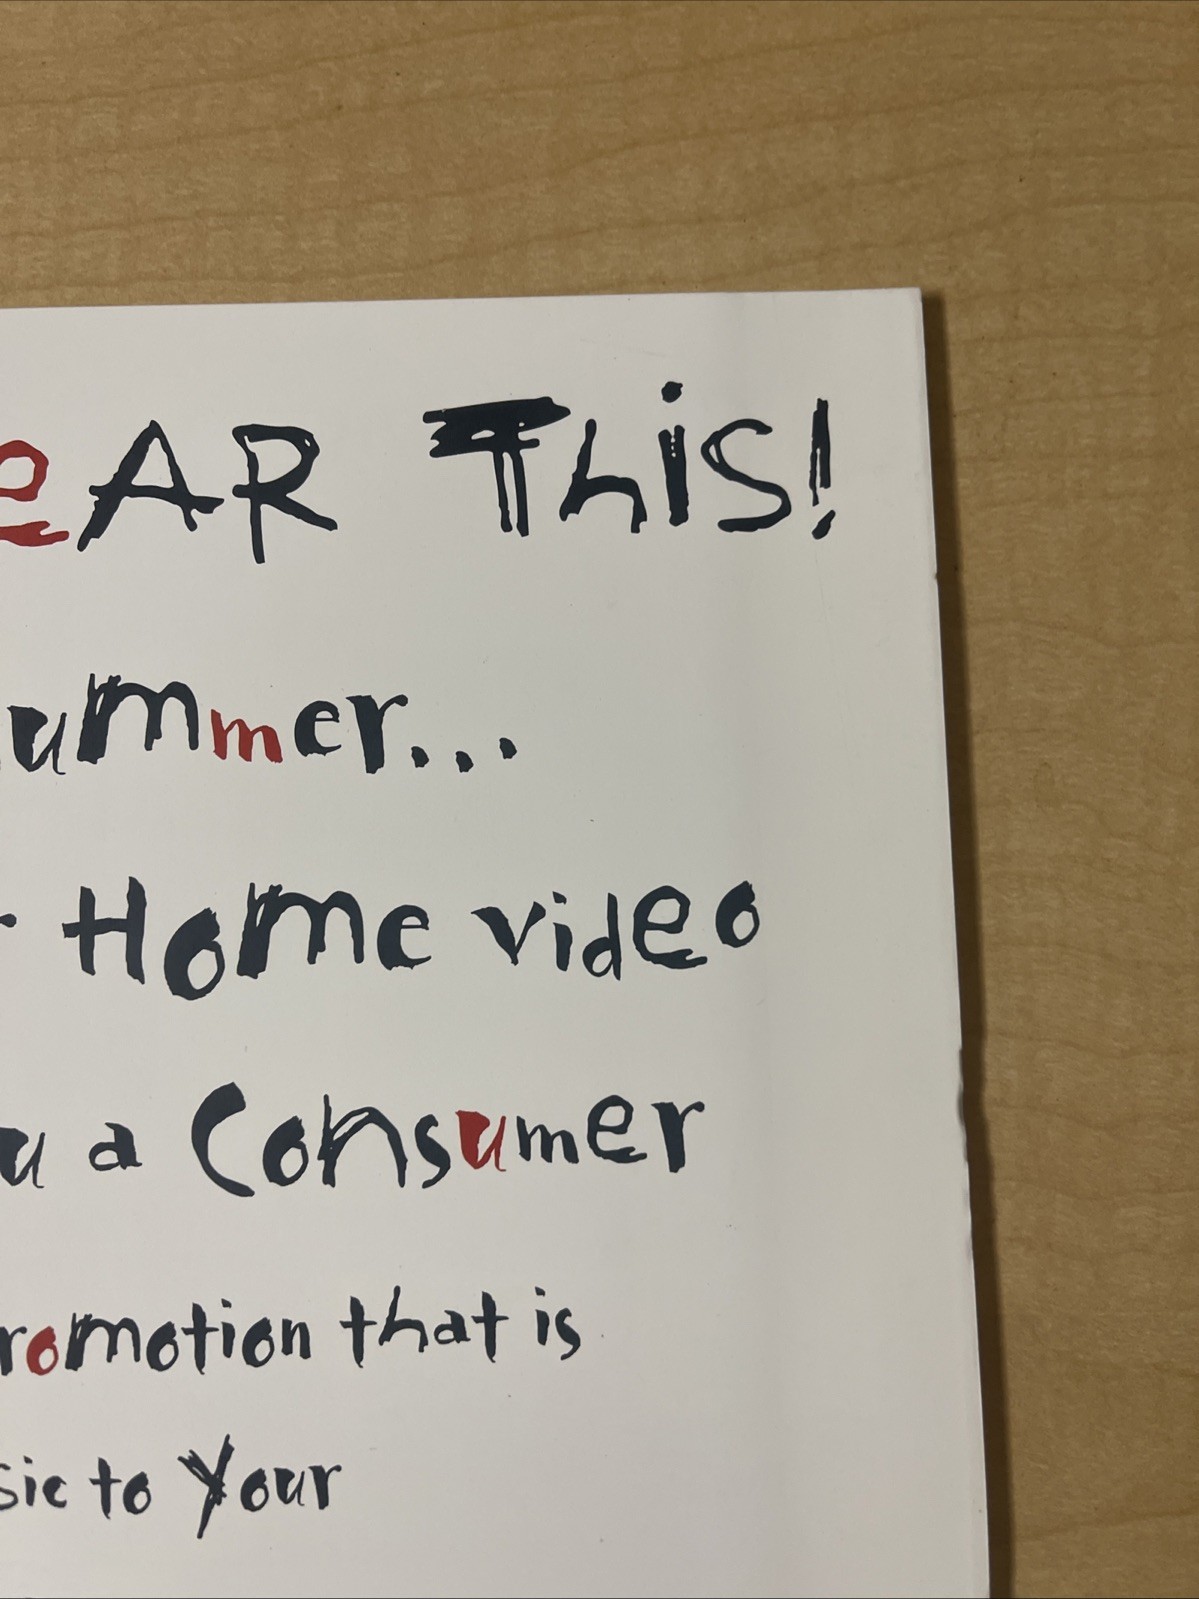 eAR This!
ummer...
Home video
u a Consumer
romotion that is
sic to Your